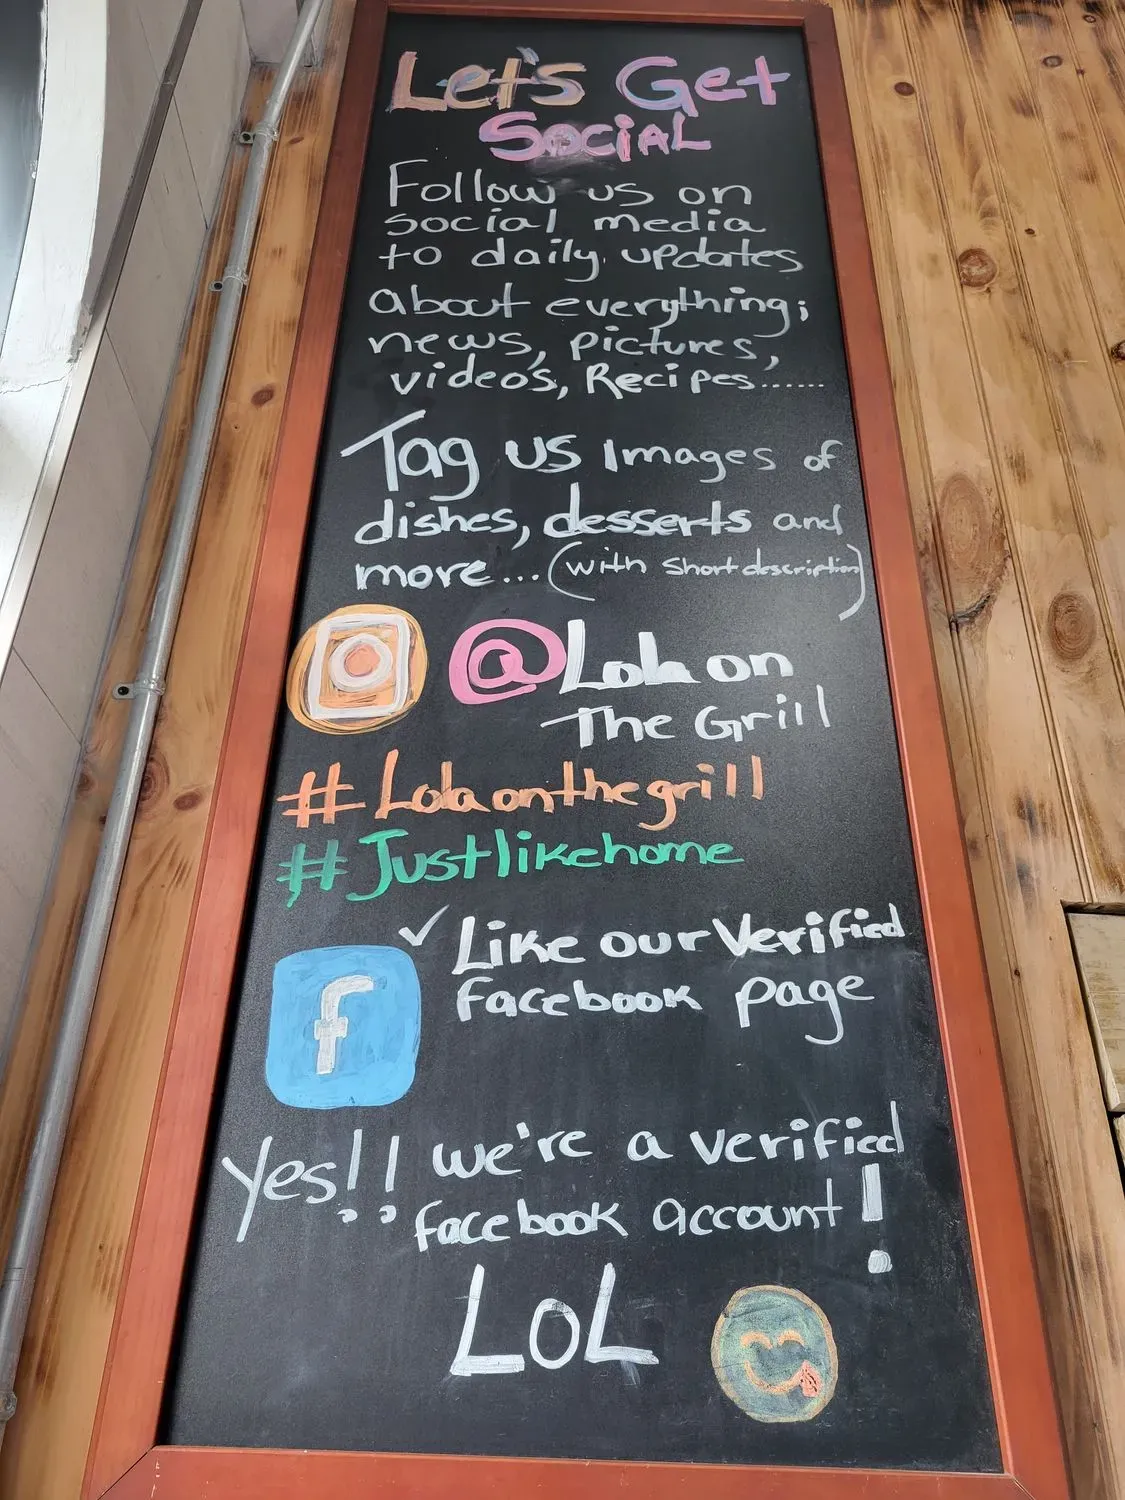 Let's Get
Social
Follow us on
social media
to daily updates
about everything;
news, pictures,
videos, Recipes......
Tag us Images of
dishes, desserts and
more... (with short description)
@Lola on
The Grill
#Lolaonthegrill
#Justlikehome
✓ Like our Verified
facebook page
f
Yes!! we're a verified
facebook account!
LoL